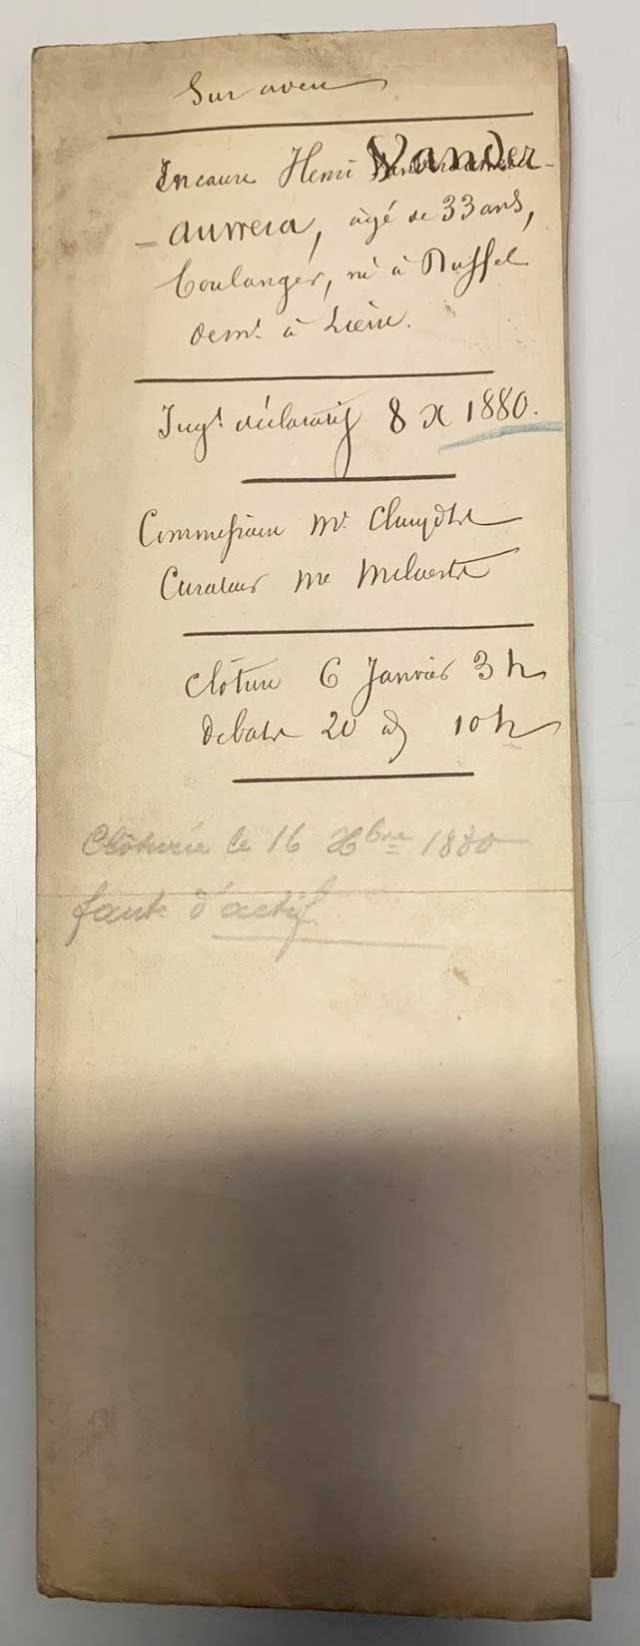 Sur aveu
En cause Henri Vander-
- auwera, âgé de 33 ans,
boulanger, né à Duffel
demt à Lierre.
Jugt déclaratif 8 X 1880.
Commissaire Mr
Curateur Me
Clôture 6 Janvier 3 h
Debats 20 dº 10 h
Clôturée le 16 Xbre 1880
faute d'actif.